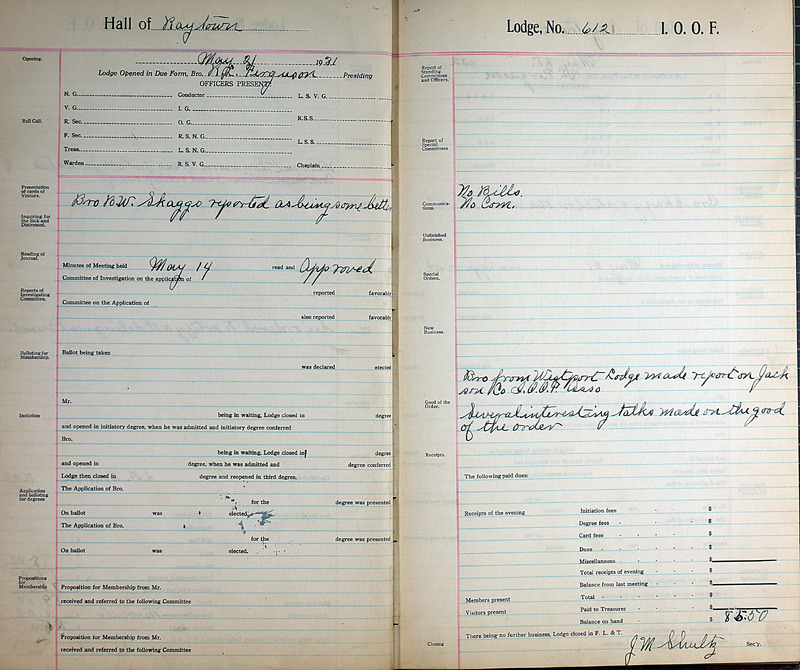 Hall of Raytown
May 21 1931
Opening.
Lodge Opened in Due Form, Bro. R.L. Ferguson Presiding
OFFICERS PRESENT:
Roll Call.
N. G. Conductor L. S. V. G.
V. G. I. G.
R. Sec. O. G. R.S.S.
F. Sec. R. S. N. G.
L.S.S.
Treas. L. S. N. G.
Warden R. S. V. G. Chaplain
Presentation of cards of Visitors.
Bro B.W. Skaggs reported as being some better
Inquiring for the Sick and Distressed.
Reading of Journal.
Minutes of Meeting held May 14 read and Approved
Committee of Investigation on the application of
Reports of Investigating Committee.
reported favorably
Committee on the Application of
also reported favorably
Balloting for Membership.
Ballot being taken
was declared elected
Mr.
Initiation
being in waiting, Lodge closed in degree
and opened in initiatory degree, when he was admitted and initiatory degree conferred
Bro.
being in waiting, Lodge closed in degree
and opened in degree, when he was admitted and degree conferred
Lodge then closed in degree and reopened in third degree.
Application and balloting for degrees
The Application of Bro.
for the degree was presented
On ballot was elected,
The Application of Bro.
for the degree was presented
On ballot was elected,
Propositions for Membership
Proposition for Membership from Mr.
received and referred to the following Committee
Proposition for Membership from Mr.
received and referred to the following Committee
Lodge, No. 612 I. O. O. F.
Report of Standing Committees and Officers.
Report of Special Committees
No Bills.
Communications.
No Com.
Unfinished Business.
Special Orders.
New Business.
Bro from Westport Lodge made report on Jack
son Co I.O.O.F. Asso
Good of the Order.
Several interesting talks made on the good
of the order
Receipts.
The following paid dues:
Receipts of the evening Initiation fees $
Degree fees $
Card fees $
Dues $
Miscellaneous $
Total receipts of evening $
Balance from last meeting $
Members present Total $
Visitors present Paid to Treasurer $
Balance on hand $ 85.50
There being no further business, Lodge closed in F. L. & T.
Closing J M Shultz Sec'y.